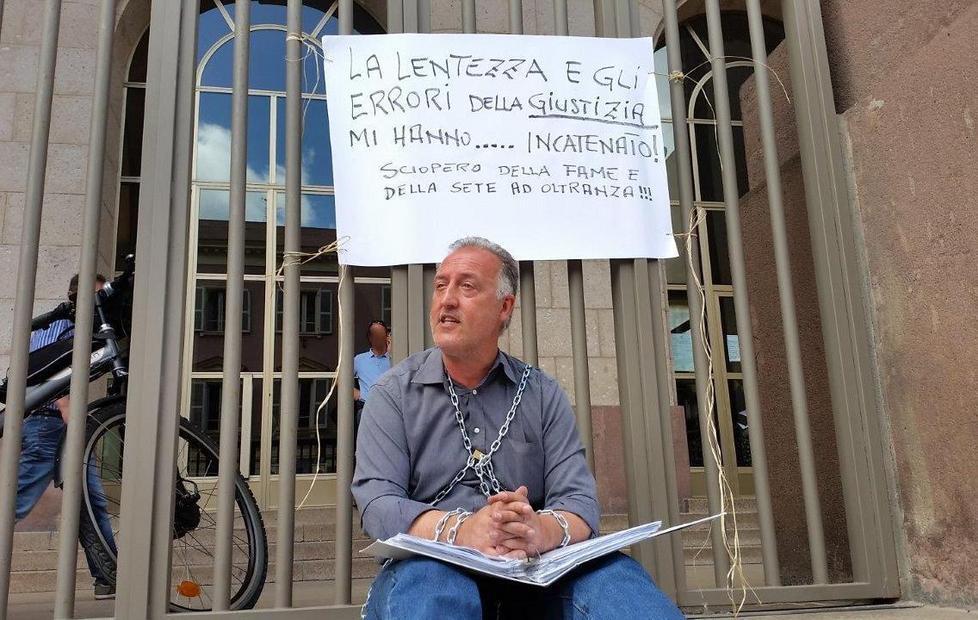 LA LENTEZZA E GLI
ERRORI DELLA GIUSTIZIA
MI HANNO..... INCATENATO!
SCIOPERO DELLA FAME E
DELLA SETE AD OLTRANZA!!!